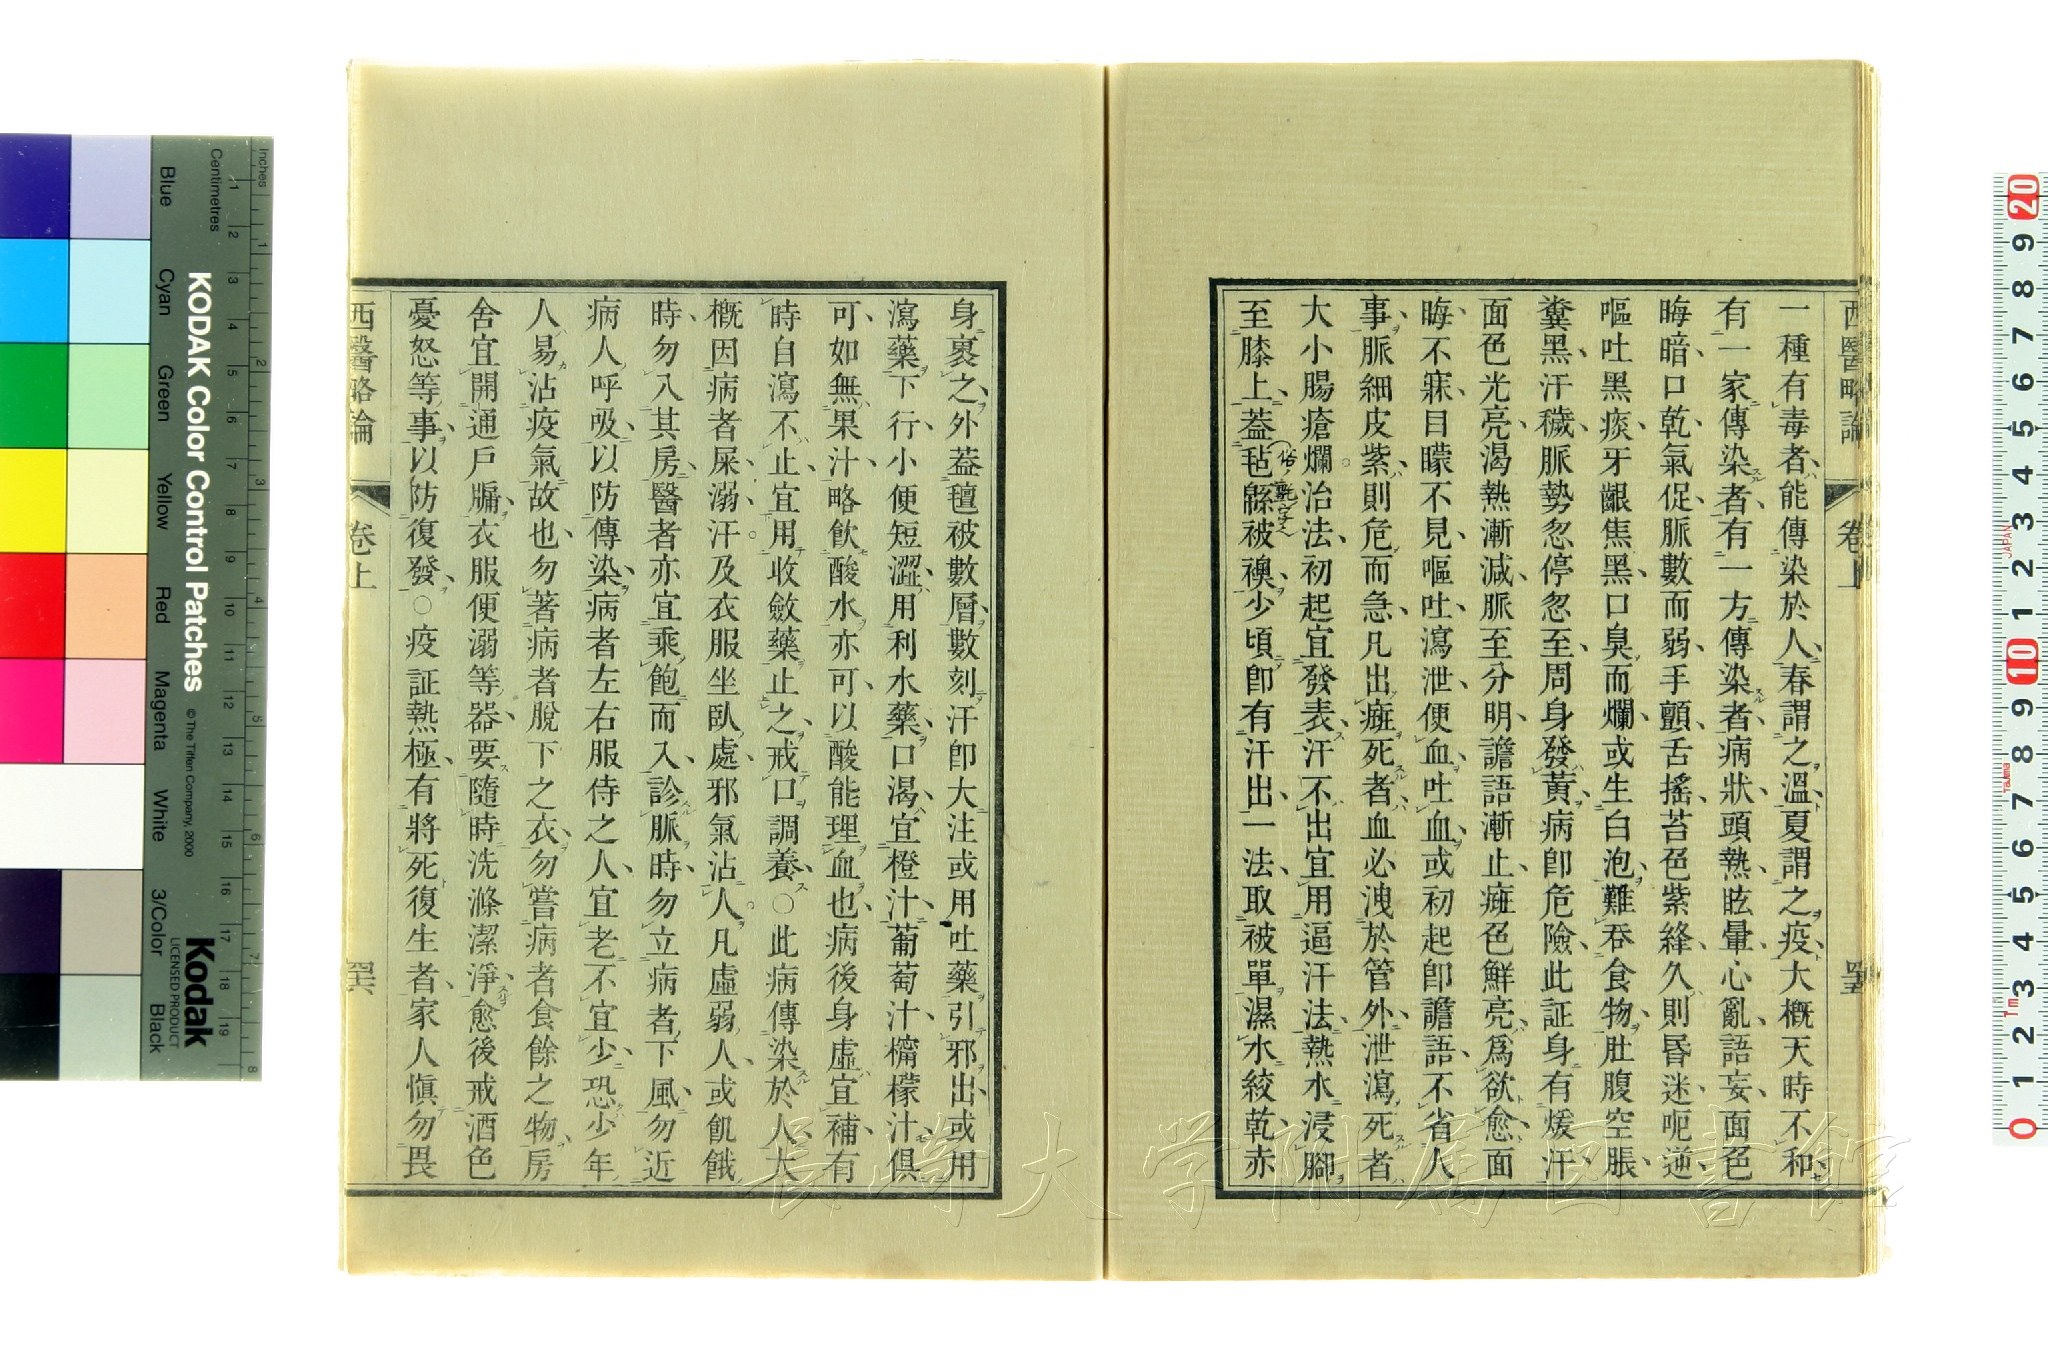 西醫略論
卷上
一種有毒者、能傳染於人、春謂之溫、夏謂之疫、大概天時不和、
有一家傳染者、有一方傳染者、病狀頭熱、眩暈、心亂、語妄、面色
晦暗、口乾、氣促、脈數而弱、手顫、舌搖、苔色紫絳、久則昏迷、呃逆、
嘔吐黑痰、牙齦焦黑、口臭而爛、或生白泡、難吞食物、肚腹空脹、
糞黑、汗穢、脈勢忽停忽至、周身發黃、病卽危險、此証身有煖汗、
面色光亮、渴熱漸減、脈至分明、譫語漸止、癍色鮮亮、爲欲愈、面
晦、不寐、目矇不見、嘔吐、瀉泄、便血、吐血、或初起卽譫語、不省人
事、脈細皮紫、則危而急、凡出癍死者、血必洩於管外、泄瀉死者、
大小腸瘡爛。治法、初起宜發表、汗不出、宜用逼汗法、熱水浸腳、
至膝上、蓋毡緜被襖、少頃卽有汗出、一法、取被單濕水絞乾、赤
身裹之、外蓋氊被數層、數刻汗卽大注、或用吐藥引邪出、或用
瀉藥下行、小便短澀、用利水藥、口渴、宜橙汁、葡萄汁、檸檬汁、俱
可、如無果汁、略飲酸水亦可、以酸能理血也、病後身虛宜補、有
時自瀉不止、宜用收斂藥止之、戒口調養、○此病傳染於人、大
概因病者屎溺汗及衣服坐臥處、邪氣沾人。凡虛弱人、或飢餓
時、勿入其房、醫者亦宜乘飽而入、診脈時、勿立病者下風、勿近
病人呼吸、以防傳染、病者左右服侍之人、宜老不宜少、恐少年
人易沾疫氣故也、勿著病者脫下之衣、勿嘗病者食餘之物、房
舍宜開通戶牖、衣服便溺等器、要隨時洗滌潔淨、愈後戒酒色
憂怒等事、以防復發、○疫証熱極、有將死復生者、家人愼勿畏
西醫略論
卷上
KODAK Color Control Patches
© The Tiffen Company, 2000
Kodak
LICENSED PRODUCT
Inches
Centimetres
Blue
Cyan
Green
Yellow
Red
Magenta
White
3/Color
Black
長崎大学附属図書館